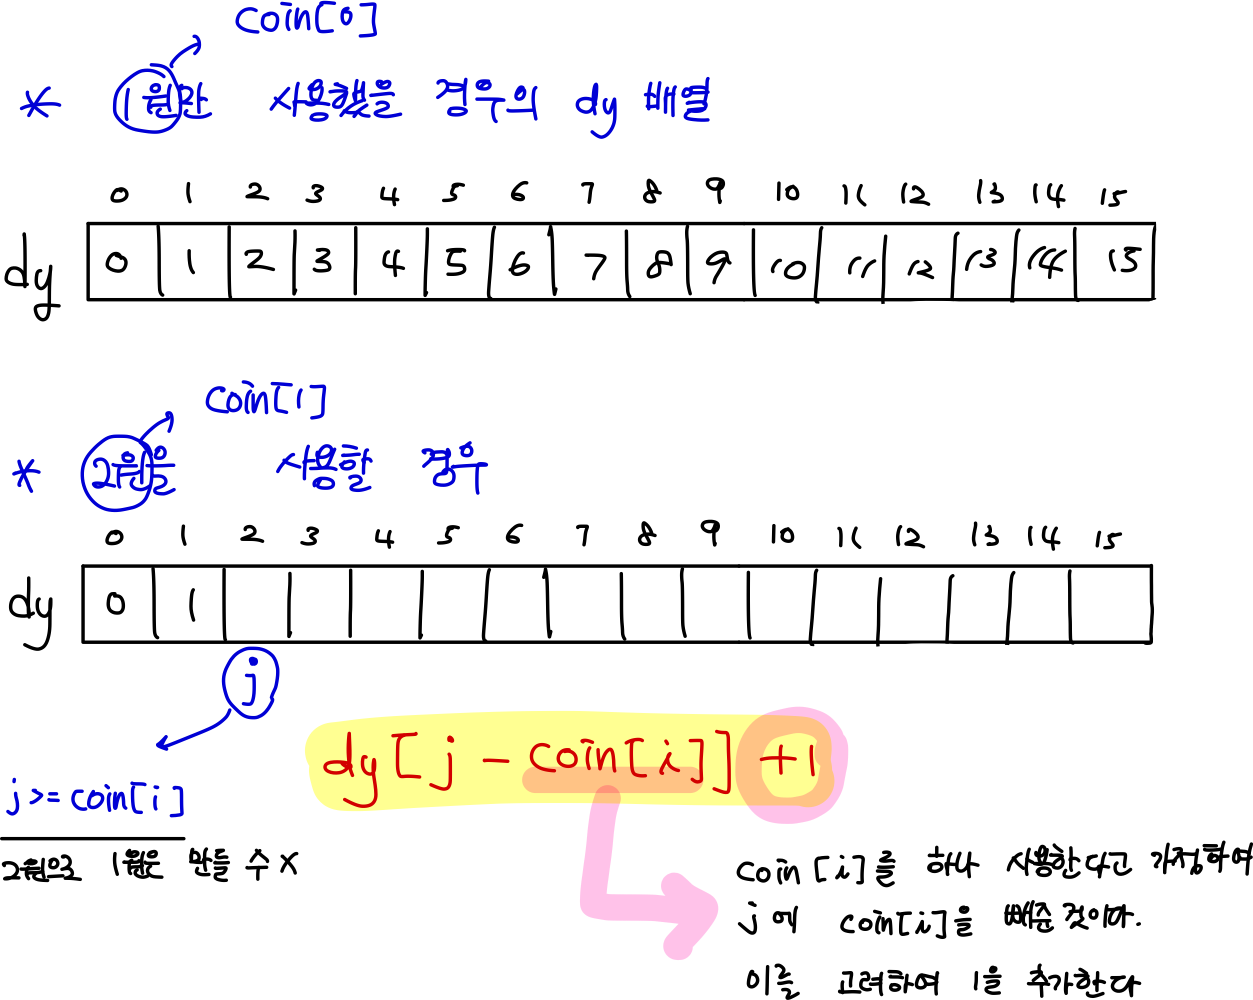 coin[0]
* 1원만 사용했을 경우의 dy 배열
0 1 2 3 4 5 6 7 8 9 10 11 12 13 14 15
dy 0 1 2 3 4 5 6 7 8 9 10 11 12 13 14 15
coin[1]
* 2원을 사용할 경우
0 1 2 3 4 5 6 7 8 9 10 11 12 13 14 15
dy 0 1
j
dy[j - coin[i]] +1
j >= coin[i]
2원으로 1원은 만들 수 X
coin[i]를 하나 사용한다고 가정하여
j에 coin[i]을 빼준 것이다.
이를 고려하여 1을 추가한다